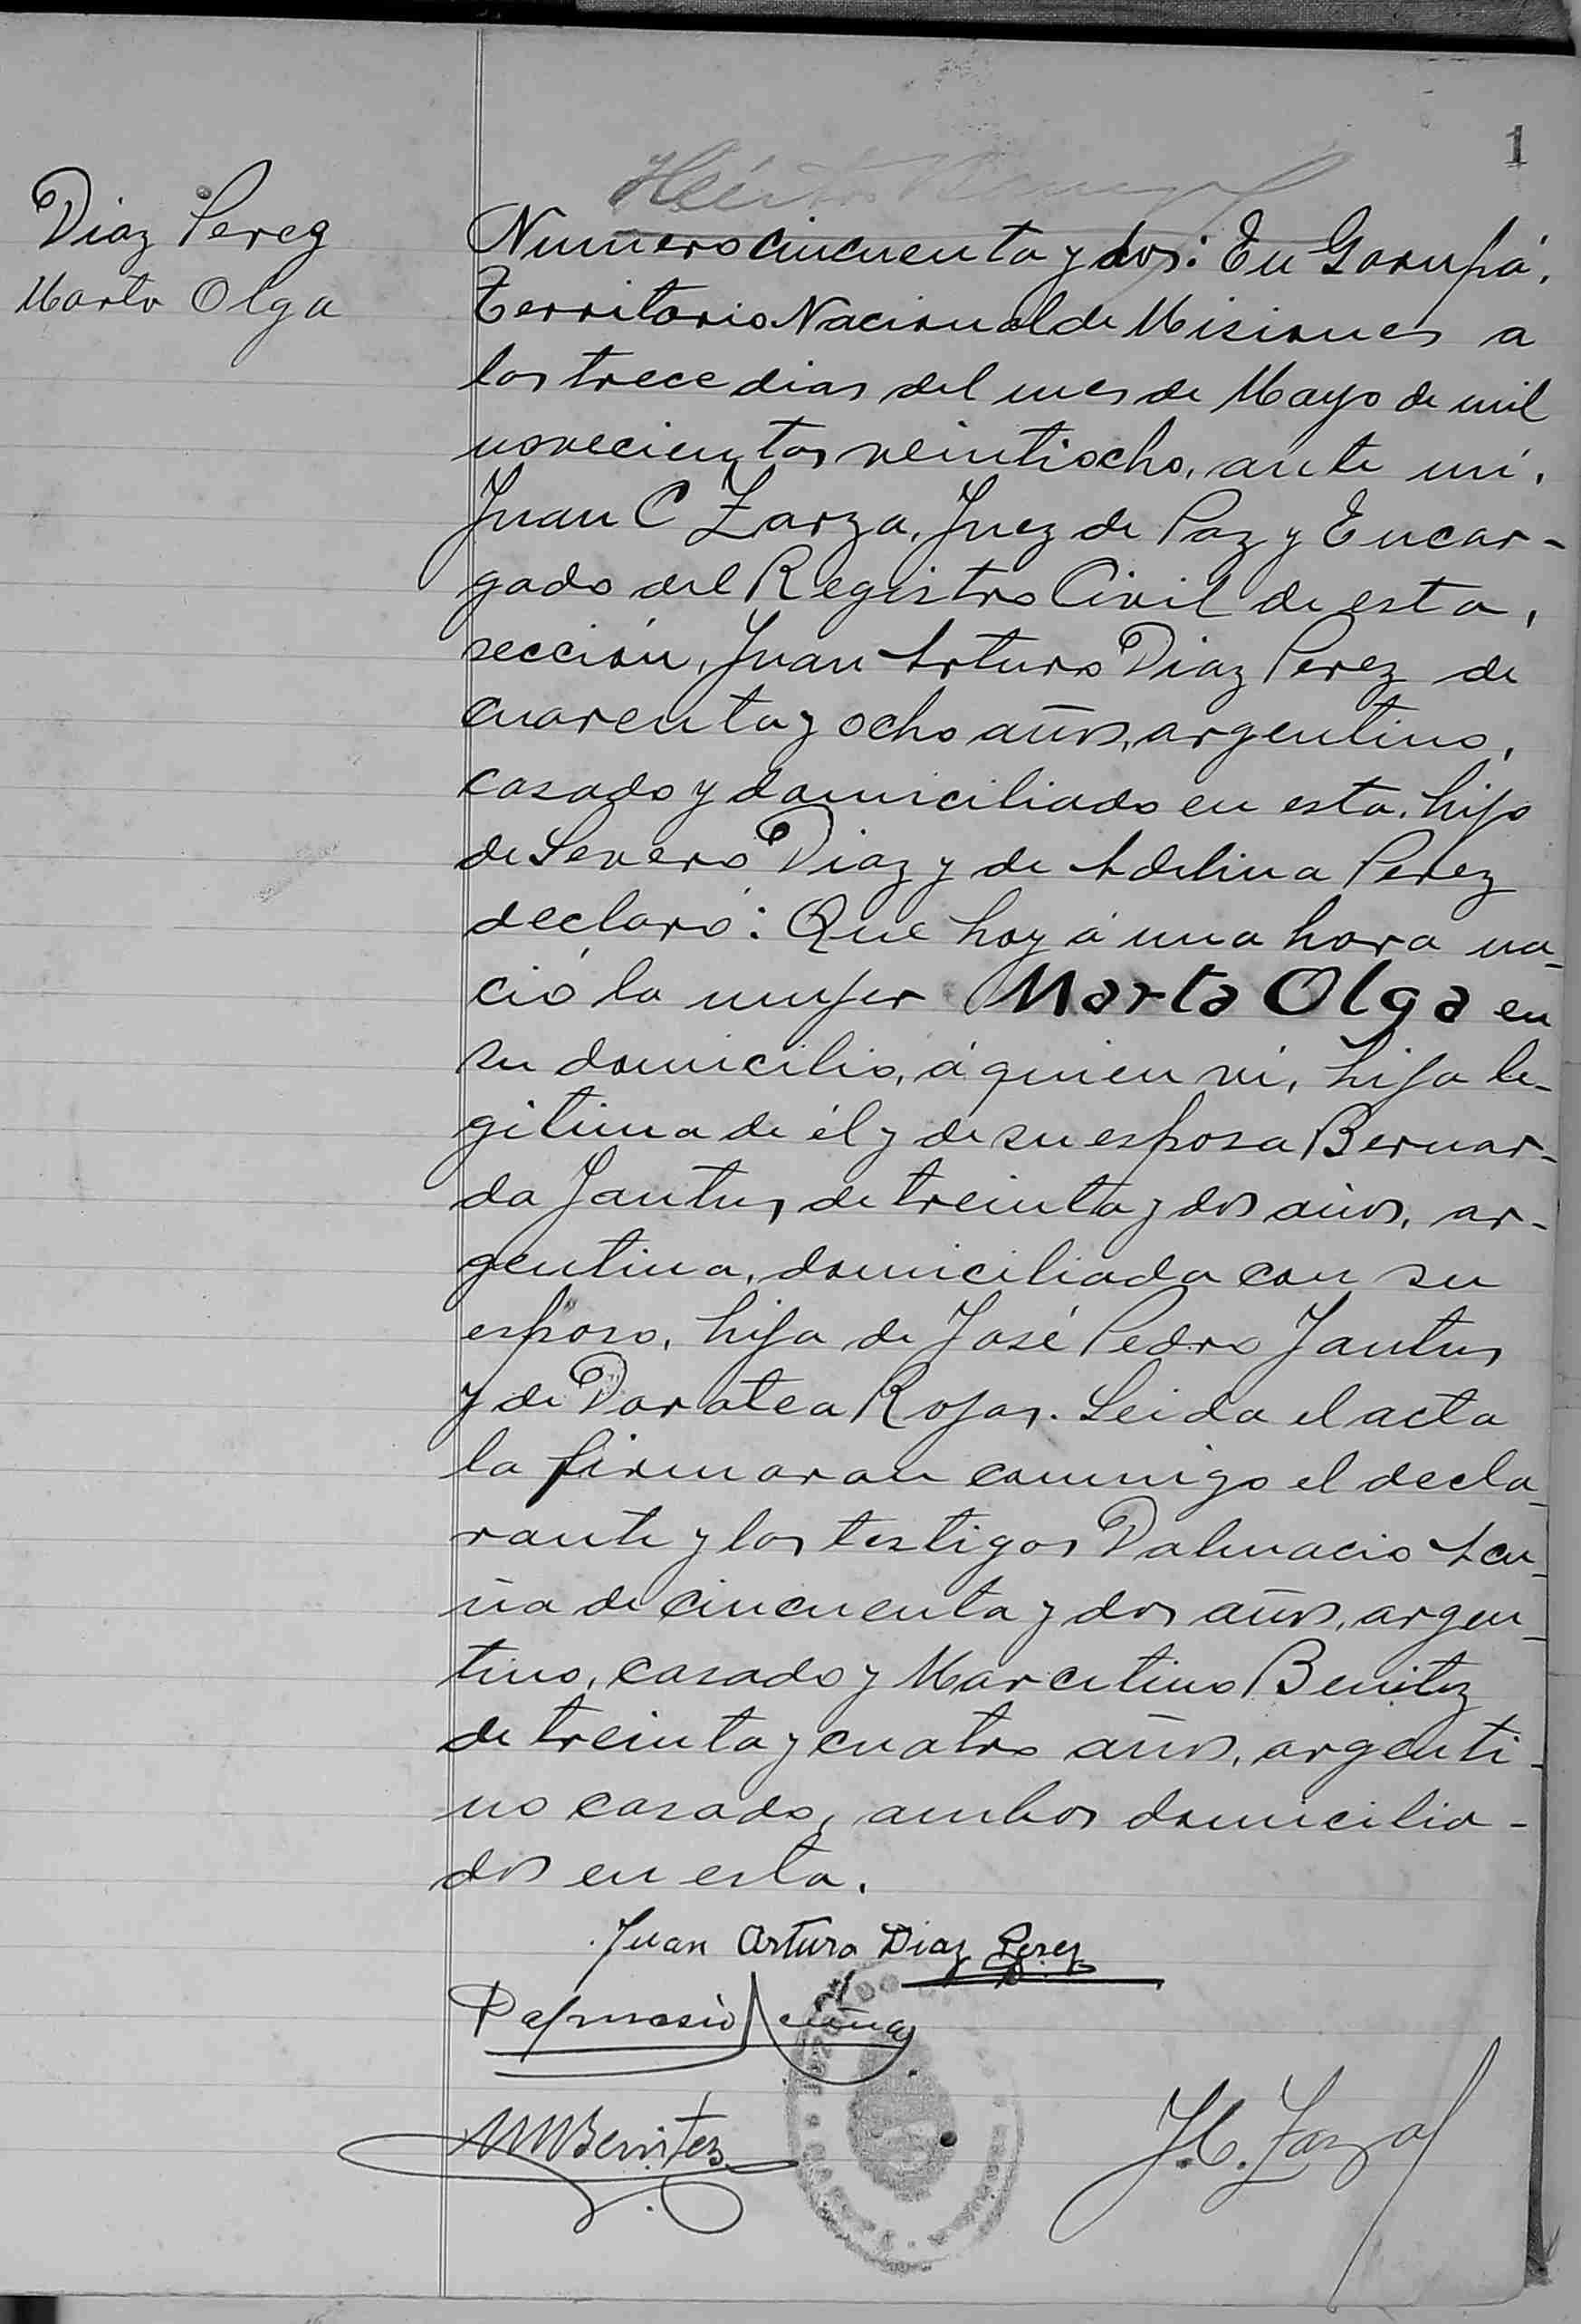 1
Diaz Perez
Marta Olga
Numero cincuenta y dos: En Garupá,
Territorio Nacional de Misiones a
los trece dias del mes de Mayo de mil
novecientos veintiocho, ante mí,
Juan C Zarza, Juez de Paz y Encar-
gado del Registro Civil de esta,
sección, Juan Arturo Diaz Perez de
cuarenta y ocho años, argentino,
casado y domiciliado en esta, hijo
de Severo Diaz y de Adelina Perez
declaró: Que hoy á una hora na-
ció la mujer Marta Olga en
su domicilio, á quien vi, hija le-
gitima de él y de su esposa Bernar-
da Jantus, de treinta y dos años, ar-
gentina, domiciliada con su
esposo, hija de José Pedro Jantus
y de Doratea Rojas. Leida el acta
la firmaron conmigo el decla-
rante y los testigos Dalmacio Acu-
ña de cincuenta y dos años, argen-
tino, casado y Marcelino Benitez
de treinta y cuatro años, argenti-
no casado, ambos domicilia-
dos en esta.
Juan Arturo Diaz Perez
Dalmasio Acuña
MM Benitez
J.C. Zarza